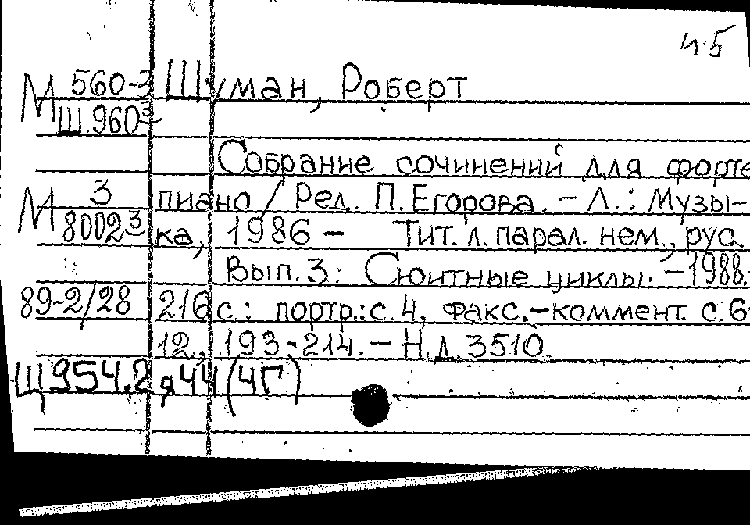 ч5
М 560-3 Шуман, Роберт
Ш.960³
Собрание сочинений для форте
М 3 пиано / Ред. П. Егорова. - Л.: Музы-
8002³ ка, 1986 - Тит. л. парал. нем., рус.
Вып. 3: Сюитные циклы. - 1988.
89-2/28 216 с.: портр.: с. 4. Факс.-коммент. с. 6
12, 193-214. - Н.д. 3510.
Щ954.2я44(4Г)